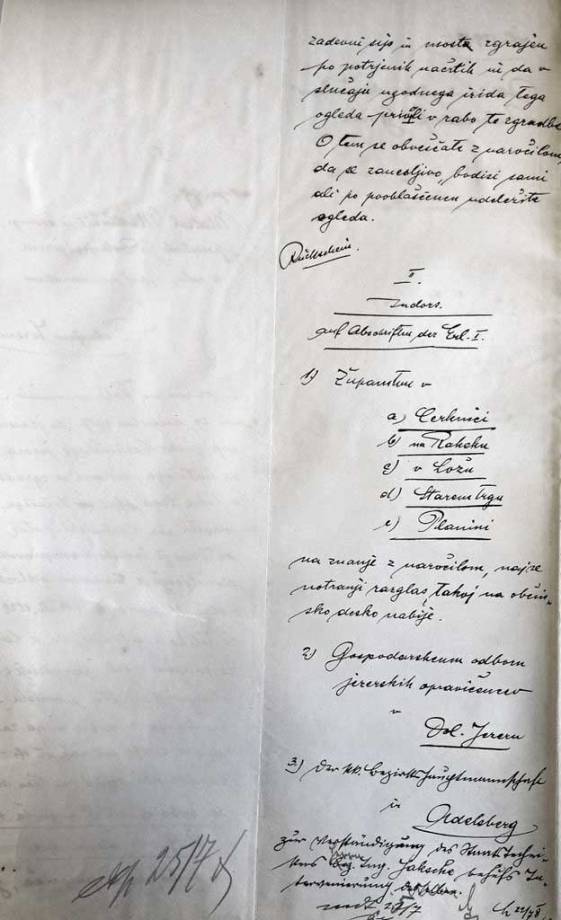 zadevni sip in mosta zgrajen
po potrjenih načrtih in da v
slučaju ugodnega izida tega
ogleda v rabo te zgradbe
O tem se obveščate z naročilom,
da se zanesljivo, bodisi sami
ali po pooblaščencu udeležite
ogleda.
Rückschein.
II.
Indors.
auf Abschriften der Erl. I.
1) Županstvu v
a) Cerknici
b) na Rakeku
c) v Ložu
d) Starem trgu
e) Planini
na znanje z naročilom, naj se
notranji razglas, takoj na občin-
sko desko nabije.
2) Gospodarskemu odboru
jezerskih opravičencev
v
Dol. Jezeru
3) Der kk. Bezirkshauptmannschaft
in
Adelsberg
zur Verständigung des Staatstechni-
kers Ing. behufs In-
tervenierung
25/7